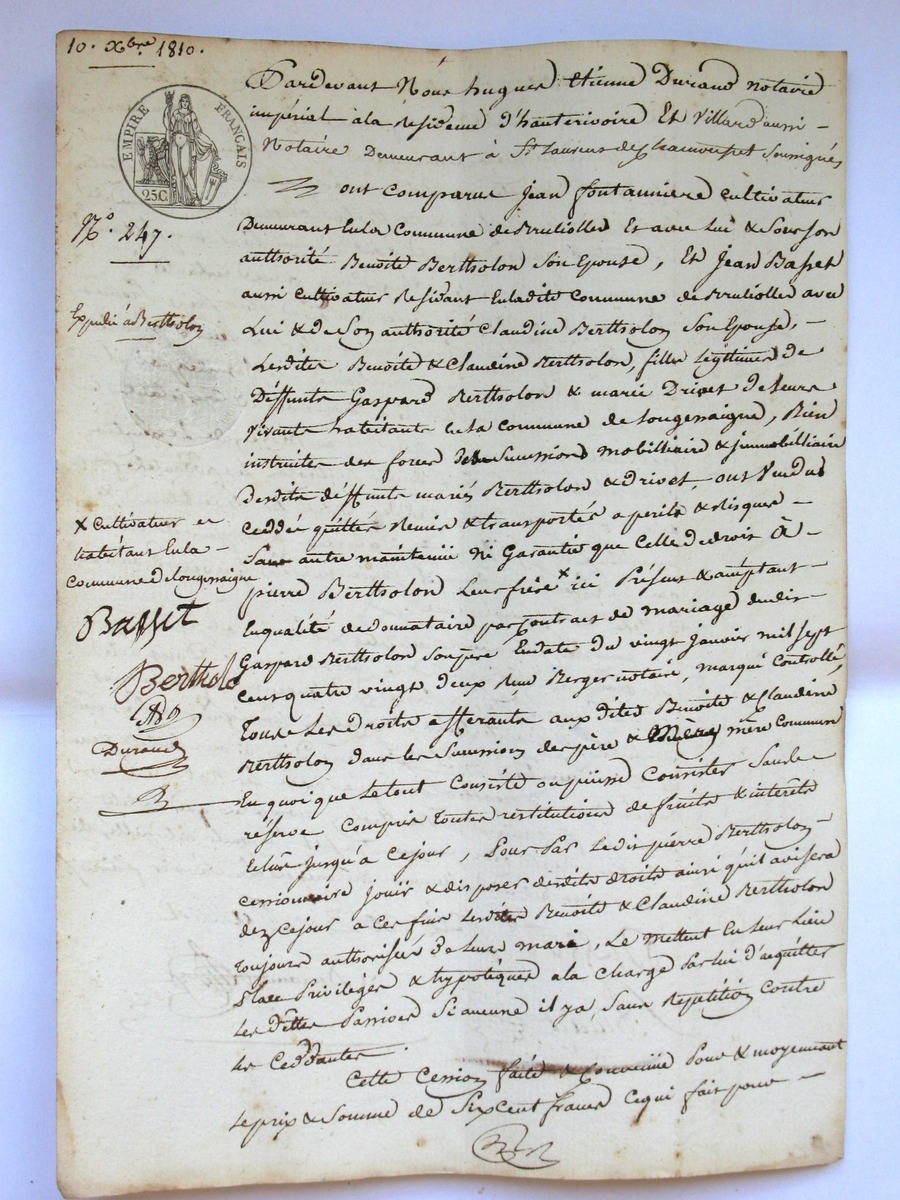 10. Xbre 1810.
EMPIRE FRANÇAIS
25C.
N.° 247.
Expedié à Bertholon
Pardevant Nous hugues Etienne Durand notaire
impérial ala Residence d'hauterivoire Et Villard aussi
Notaire Demeurant à St Laurent de Chamousset Soussignés
ont comparue Jean fontanniere cultivateur
Demeurant Enla Commune de Brulliolles Et avec Lui & Sous son
authorité Benoite Bertholon Son Epouse, Et Jean Basset
aussi cultivateur Residant Enladite Commune de Brulliolles avec
Lui & de Son authorité Claudine Bertholon Son Epouse,
Lesdites Benoite & Claudine Bertholon, filles légitimes de
Déffunts Gaspard Bertholon & marie Drivet de leurs
vivants habitants En la Commune de Longessaigne, Bien
instruites des forces des Successions mobilliaire & jmmobilliaire
desdits déffunts mariés Bertholon & drivet, ont Vendus
ceddés quittés Remis & transportés a perils & Risques
Sans autre maintenüe Ni Garantie que Celle de droit A
pierre Bertholon Leur frère x ici Présent & acceptant
x Cultivateur et
habitant Enla
Commune de Longessaigne
Basset
Bertholo
Durand
Enqualité de donnataire par Contrat de mariage dudit
Gaspard Bertholon Son père Endate du vingt janvier mil sept
Cent quatre vingt deux Reçu Berger notaire, marqué Controllé,
Tous Les droits afférants aux dites Benoite & Claudine
Bertholon dans les Succession des père & mère Commun
En quoi que Letout Consiste ou puisse Consister Sans
réserve Compris Toutes restitutions de fruits & intérêts
Echus jusqu'a Cejour, Pour Par Ledit pierre Bertholon
Cessionnaire jouir & disposer desdits droits ainsi qu'il avisera
dez Cejour a Ces fins Lesdites Benoite & Claudine Bertholon
Toujours authorisées de Leurs maris, Le mettent En Leur Lieu
Place Privilèges & hypotèques ala Charge Par lui d'acquitter
Les dettes Passives Si aucune il y a, Sans Repetition Contre
les Ceddantes.
Cette Cession faite & Convenüe Pour & moyennant
Le prix & Somme de Six cent francs Ce qui fait pour